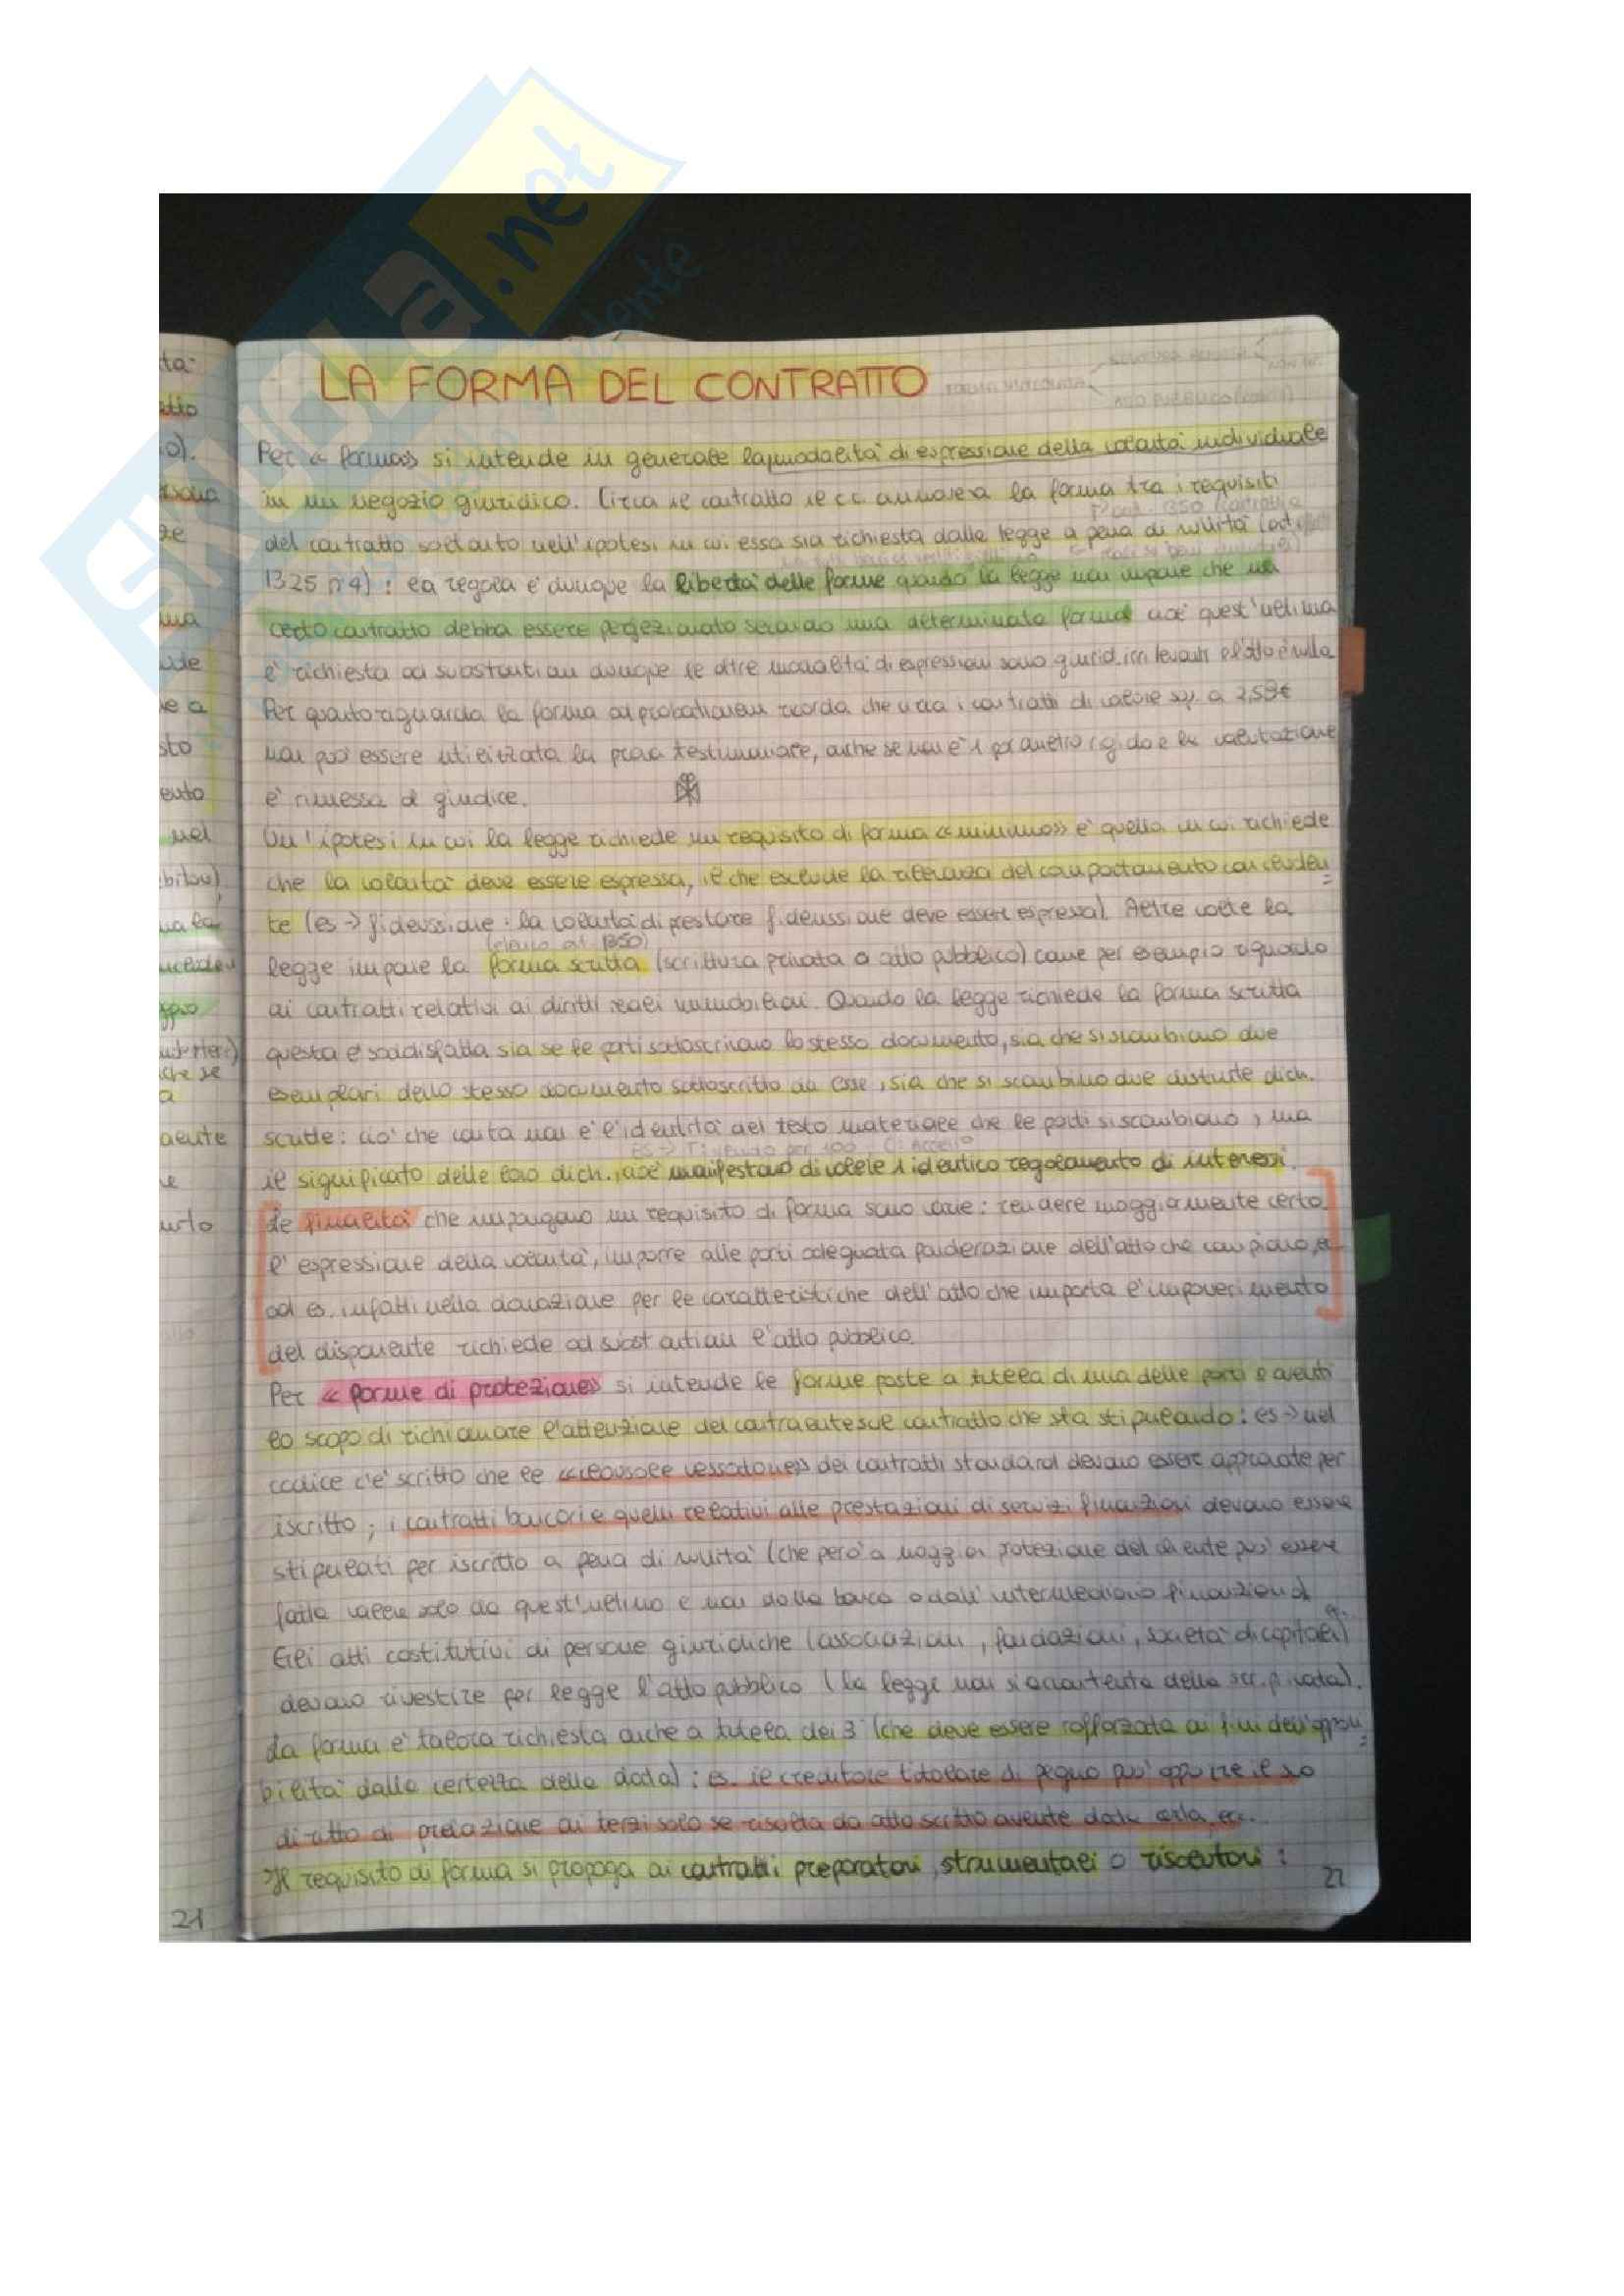 SKUOLA.net
LA FORMA DEL CONTRATTO
Per «forma» si intende in generale la modalità di espressione della volontà individuale
in un negozio giuridico. Circa il contratto il c.c. annovera la forma tra i requisiti
del contratto soltanto nell'ipotesi in cui essa sia richiesta dalla legge a pena di nullità (art.
1325 n°4) : la regola è dunque la libertà delle forme quando la legge non impone che un
certo contratto debba essere perfezionato secondo una determinata forma cioè quest'ultima
è richiesta ad substantiam dunque le altre modalità di espressioni sono giurid. irrilevanti e l'atto è nullo
Per quanto riguarda la forma ad probationem ricorda che circa i contratti di valore sup. a 2,58€
non può essere utilizzata la prova testimoniale, anche se non è 1 parametro rigido e la valutazione
è rimessa al giudice.
Un'ipotesi in cui la legge richiede un requisito di forma «minimo» è quella in cui richiede
che la volontà deve essere espressa, il che esclude la rilevanza del comportamento concluden
te (es → fideiussione : la volontà di prestare fideiussione deve essere espressa). Altre volte la
(elenco art. 1350)
legge impone la forma scritta (scrittura privata o atto pubblico) come per esempio riguardo
ai contratti relativi ai diritti reali immobiliari. Quando la legge richiede la forma scritta
questa è soddisfatta sia se le parti sottoscrivono lo stesso documento, sia che si scambiano due
esemplari dello stesso documento sottoscritto da esse, sia che si scambino due distinte dich.
scritte: ciò che conta non è l'identità del testo materiale che le parti si scambiano, ma
es → Ti vendo per 100 Ok Accetto
il significato delle loro dich., cioè manifestano di volere 1 identico regolamento di interessi.
Le finalità che impongono un requisito di forma sono varie: rendere maggiormente certo
l'espressione della volontà, imporre alle parti adeguata ponderazione dell'atto che compiono,
ad es. infatti nella donazione per le caratteristiche dell'atto che importa l'impoverimento
del disponente richiede ad substantiam l'atto pubblico.
Per «forme di protezione» si intende le forme poste a tutela di una delle parti e aventi
lo scopo di richiamare l'attenzione del contraente sul contratto che sta stipulando: es → nel
codice c'è scritto che le «clausole vessatorie» dei contratti standard devono essere approvate per
iscritto ; i contratti bancari e quelli relativi alle prestazioni di servizi finanziari devono essere
stipulati per iscritto a pena di nullità (che però a maggior protezione del cliente può essere
fatta valere solo da quest'ultimo e non dalla banca o dall'intermediario finanziario).
Gli atti costitutivi di persone giuridiche (associazioni, fondazioni, società di capitali)
devono rivestire per legge l'atto pubblico (la legge non si accontenta della scr. privata).
La forma è talora richiesta anche a tutela dei 3i (che deve essere rafforzata ai fini dell'oppon
bilità dalla certezza della data) : es. il creditore titolare di pegno può opporre il suo
diritto di prelazione ai terzi solo se risulta da atto scritto avente data certa, ecc.
Il requisito di forma si propaga ai contratti preparatori, strumentali o risolutori :
22
21